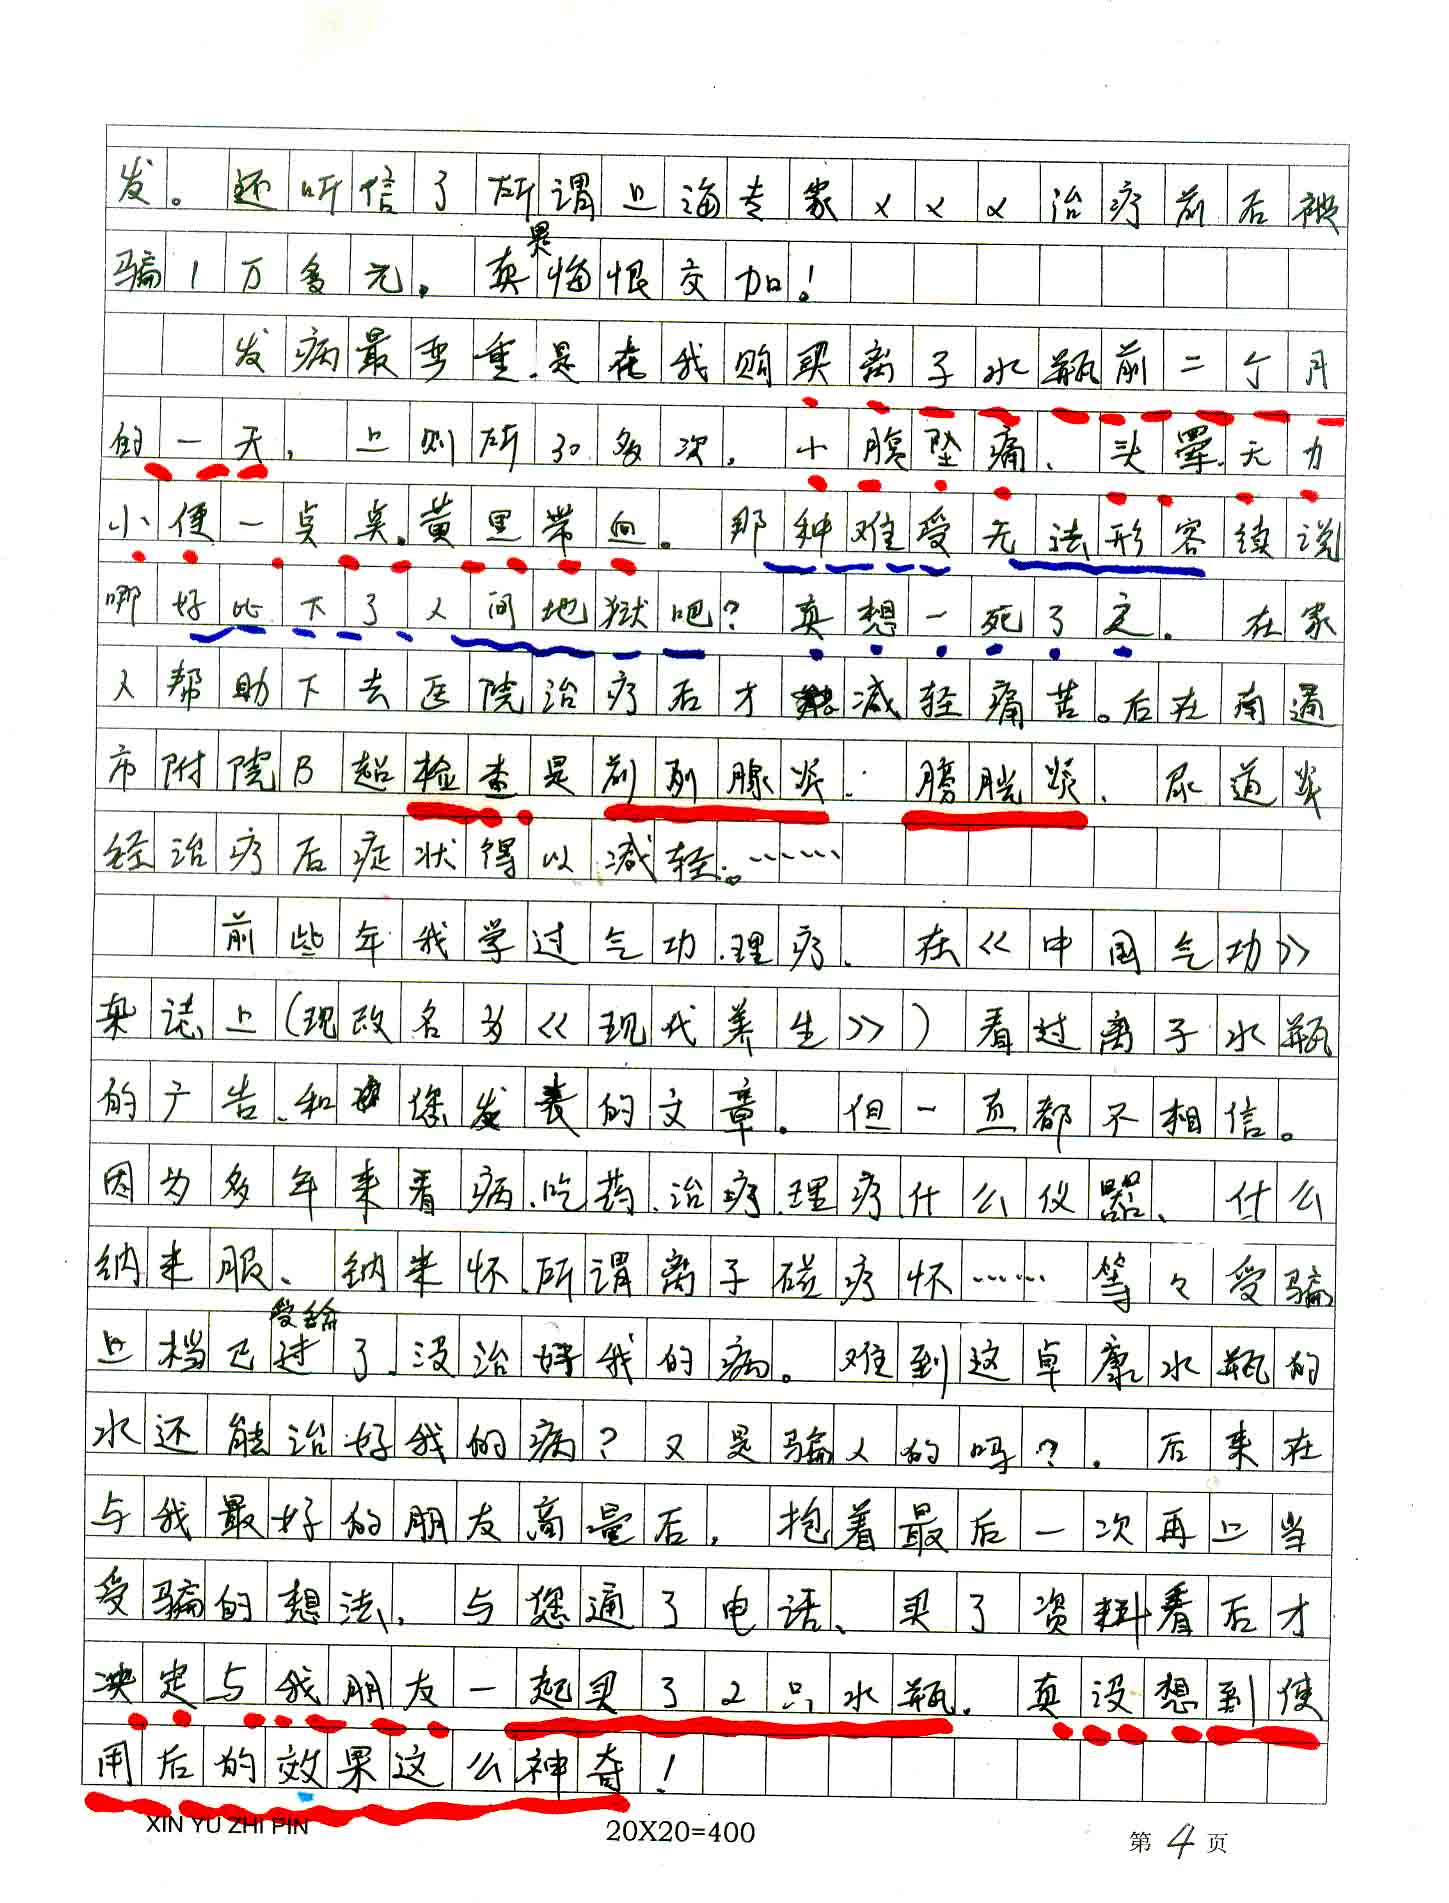 发。还听信了所谓上海专家×××治疗前后被
骗1万多元。真是悔恨交加！
发病最严重.是在我购买离子水瓶前二个月
的一天，上则所30多次。小腹坠痛、头晕.无力
小便一点点.黄里带血。那种难受无法形容读说
哪好比下了人间地狱吧？真想一死了之。在家
人帮助下去医院治疗后才减轻痛苦。后在南通
市附院B超检查是前列腺炎.膀胱炎、尿道炎
经治疗后症状得以减轻。……
前些年我学过气功.理疗、在《中国气功》
杂誌上(现改名为《现代养生》)看过离子水瓶
的广告.和您发表的文章。但一直都不相信。
因为多年来看病.吃药.治疗.理疗.什么仪器、什么
纳米服、纳米怀.所谓离子磁疗怀……等々受骗
上档已受够过了.没治好我的病。难到这卓康水瓶的
水还能治好我的病？又是骗人的吗？.后来在
与我最好的朋友商量后，抱着最后一次再上当
受骗的想法，与您通了电话、买了资料看后才
决定与我朋友一起买了2只水瓶。真没想到使
用后的效果这么神奇！
XIN YU ZHI PIN 20X20=400 第4页